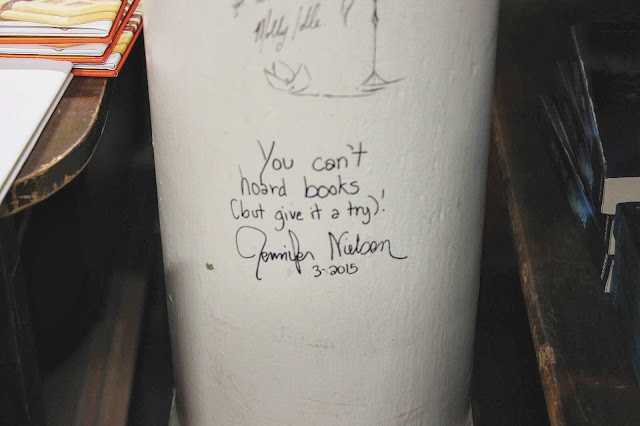 Molly Idle
You can't
hoard books
(but give it a try)!
Jennifer Nielsen
3-2015